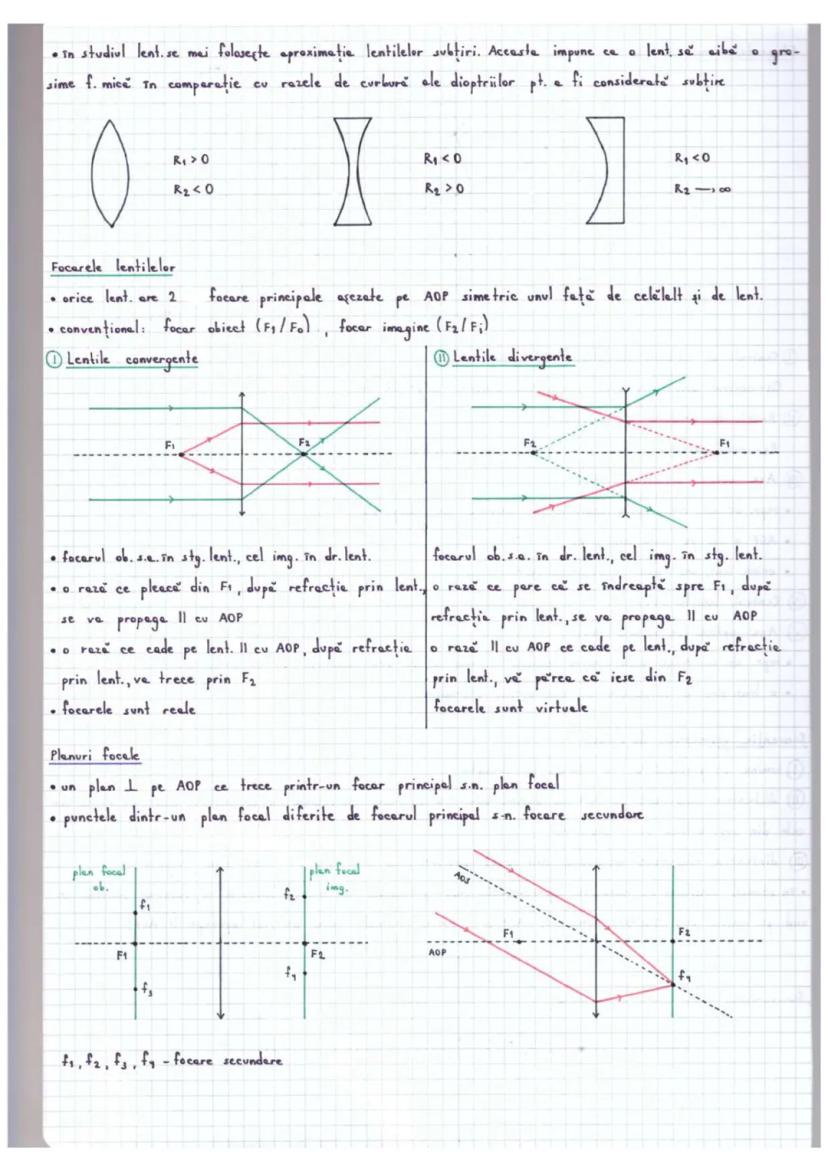 • în studiul lent. se mai folosește aproximația lentilelor subțiri. Aceasta impune ca o lent. să aibă o gro-
sime f. mică în comparație cu razele de curbură ale dioptriilor pt. a fi considerată subțire
R₁ > 0
R₂ < 0
R₁ < 0
R₂ > 0
R₁ < 0
R₂ → ∞
Focarele lentilelor
• orice lent. are 2 focare principale așezate pe AOP simetric unul față de celălalt și de lent.
• convențional: focar obiect (F₁/F₀), focar imagine (F₂/Fi)
I Lentile convergente
F₁
F₂
• focarul ob. s.a. în stg. lent., cel img. în dr. lent.
• o rază ce pleacă din F₁, după refracție prin lent.,
se va propaga || cu AOP
• o rază ce cade pe lent. || cu AOP, după refracție
prin lent., va trece prin F₂
• focarele sunt reale
II Lentile divergente
F₂
F₁
focarul ob. s.a. în dr. lent., cel img. în stg. lent.
o rază ce pare că se îndreaptă spre F₁, după
refracția prin lent., se va propaga || cu AOP
o rază || cu AOP ce cade pe lent., după refracție
prin lent., vă părea că iese din F₂
focarele sunt virtuale
Planuri focale
• un plan ⊥ pe AOP ce trece printr-un focar principal s.n. plan focal
• punctele dintr-un plan focal diferite de focarul principal s.n. focare secundare
plan focal
ob.
f₁
F₁
f₃
plan focal
img.
f₂
F₂
f₄
AOS
F₁
F₂
AOP
f₄
f₁, f₂, f₃, f₄ - focare secundare